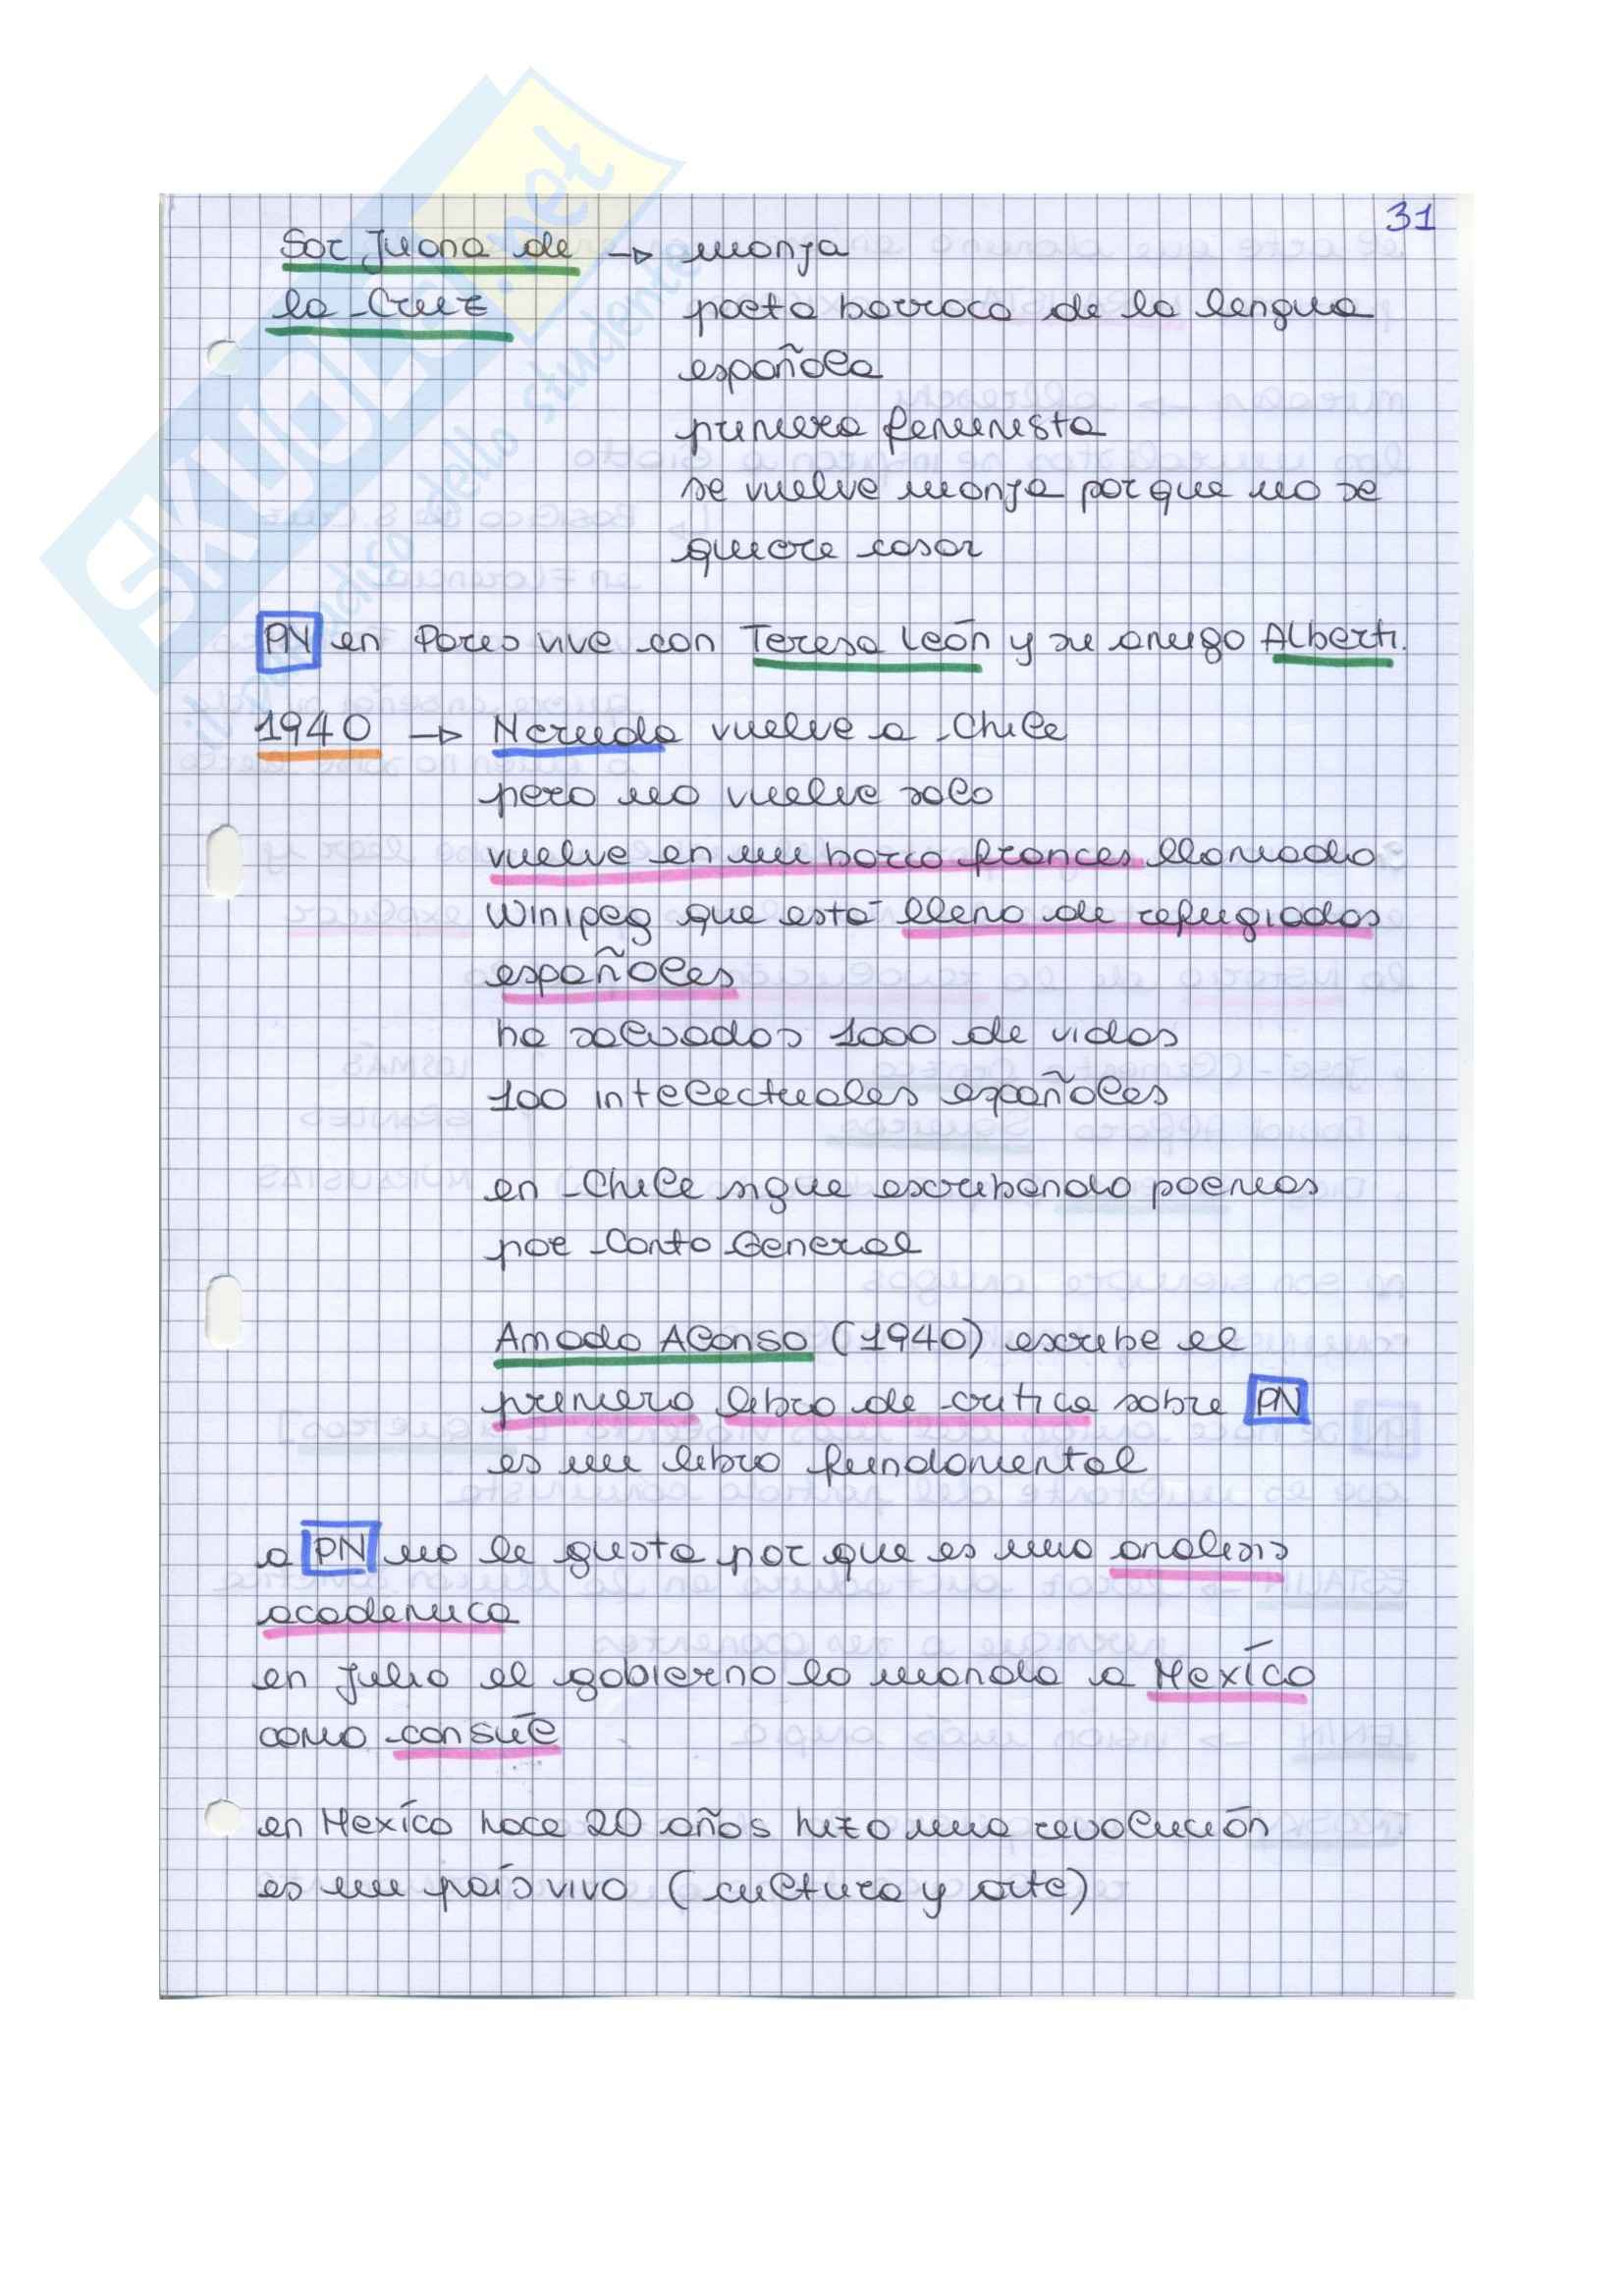 31
Sor Juana de → monja
la Cruz poeta barroca de la lengua
española
primera feminista
se vuelve monja porque no se
quiere casar
PN en Pares vive con Teresa León y su amigo Alberti.
1940 → Neruda vuelve a Chile
pero no vuelve solo
vuelve en un barco frances llamado
Winipeg que está lleno de refugiados
españoles
ha salvados 1000 de vidas
100 intelectuales españoles
en Chile sigue escribendo poemas
por Canto General
Amado Alonso (1940) escribe el
primero libro de critica sobre PN
es un libro fundamental
a PN no le gusta por que es una analisis
academica
en Julio el gobierno lo manda a Mexíco
como consúl
en Mexíco hace 20 años hizo una revolución
es un país vivo (cultura y arte)
SKUOLA.net
il paradiso dello studente